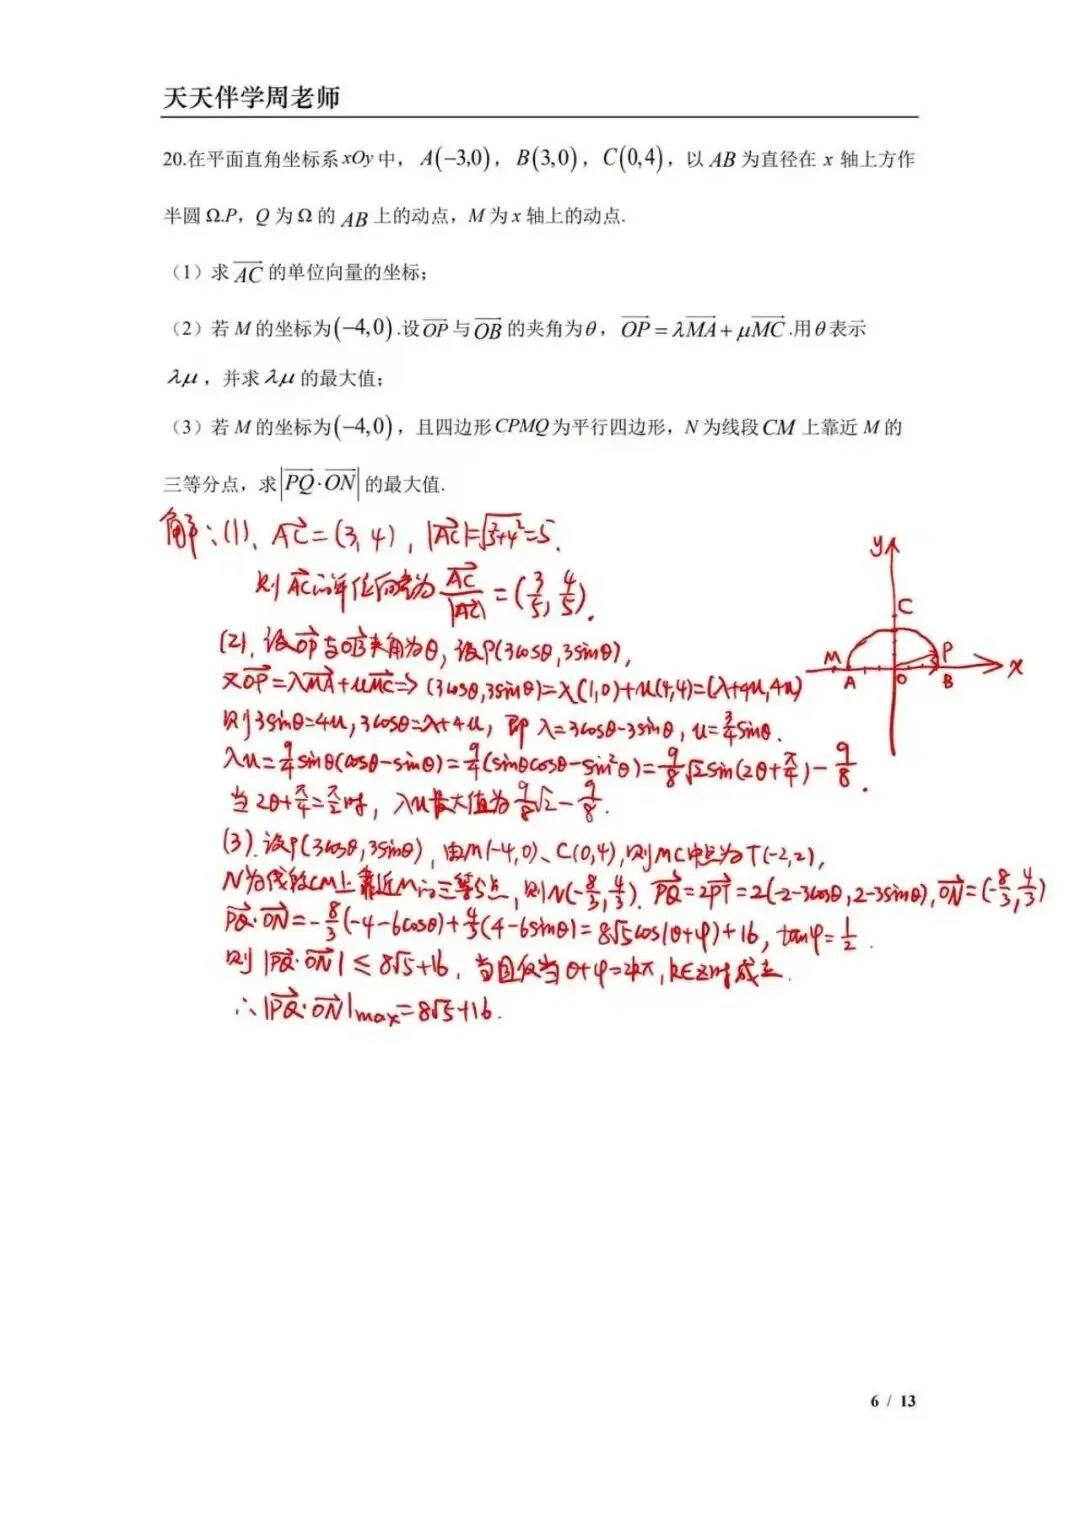 天天伴学周老师
20.在平面直角坐标系 xOy 中，A(−3,0)，B(3,0)，C(0,4)，以 AB 为直径在 x 轴上方作
半圆 Ω.P，Q 为 Ω 的 AB 上的动点，M 为 x 轴上的动点.
（1）求 \overrightarrow{AC} 的单位向量的坐标；
（2）若 M 的坐标为(−4,0).设 \overrightarrow{OP} 与 \overrightarrow{OB} 的夹角为θ，\overrightarrow{OP} = λ\overrightarrow{MA} + μ\overrightarrow{MC}.用θ表示
λμ，并求 λμ 的最大值；
（3）若 M 的坐标为(−4,0)，且四边形 CPMQ 为平行四边形，N 为线段 CM 上靠近 M 的
三等分点，求 |\overrightarrow{PQ}·\overrightarrow{ON}| 的最大值.
解：(1)、\overrightarrow{AC}=(3,4)，|\overrightarrow{AC}|=√(3²+4²)=5.
则\overrightarrow{AC}的单位向量为 \overrightarrow{AC}/|\overrightarrow{AC}| = (3/5, 4/5).
(2)、设\overrightarrow{OP}与\overrightarrow{OB}夹角为θ，设P(3cosθ,3sinθ)，
又\overrightarrow{OP}=λ\overrightarrow{MA}+μ\overrightarrow{MC}⇒(3cosθ,3sinθ)=λ(1,0)+μ(4,4)=(λ+4μ,4μ)
则3sinθ=4μ，3cosθ=λ+4μ，即 λ=3cosθ-3sinθ，μ=3/4sinθ.
λμ=9/4sinθ(cosθ-sinθ)=9/4(sinθcosθ-sin²θ)=9/8√2sin(2θ+π/4)-9/8.
当2θ+π/4=π/2时，λμ最大值为9/8√2-9/8.
(3).设P(3cosθ,3sinθ)，由M(-4,0)、C(0,4)，则MC中点为T(-2,2)，
N为线段CM上靠近M的三等分点，则N(-8/3,4/3).\overrightarrow{PQ}=2\overrightarrow{PT}=2(-2-3cosθ,2-3sinθ)，\overrightarrow{ON}=(-8/3,4/3)
\overrightarrow{PQ}·\overrightarrow{ON}=-8/3(-4-6cosθ)+4/3(4-6sinθ)=8√5cos(θ+φ)+16，tanφ=1/2.
则|\overrightarrow{PQ}·\overrightarrow{ON}|≤8√5+16，当且仅当θ+φ=2kπ，k∈Z时成立.
∴|\overrightarrow{PQ}·\overrightarrow{ON}|max=8√5+16.
y
C
M
P
A
O
B
x
6 / 13